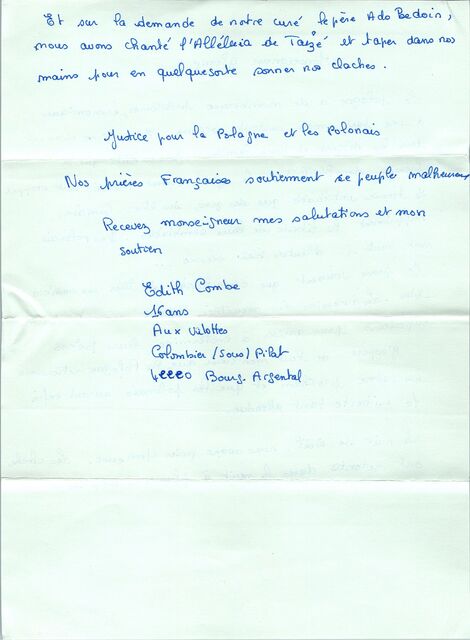 Et sur la demande de notre curé le père Ado Bedoin,
nous avons chanté l'Alléluia de Taizé et taper dans nos
mains pour en quelquesorte sonner nos cloches.
Justice pour la Pologne et les Polonais
Nos prières Françaises soutiennent se peuple malheureux
Recevez monseigneur mes salutations et mon
soutien
Edith Combe
16 ans
Aux Vilottes
Colombier (Sous) Pilat
Bourg. Argental